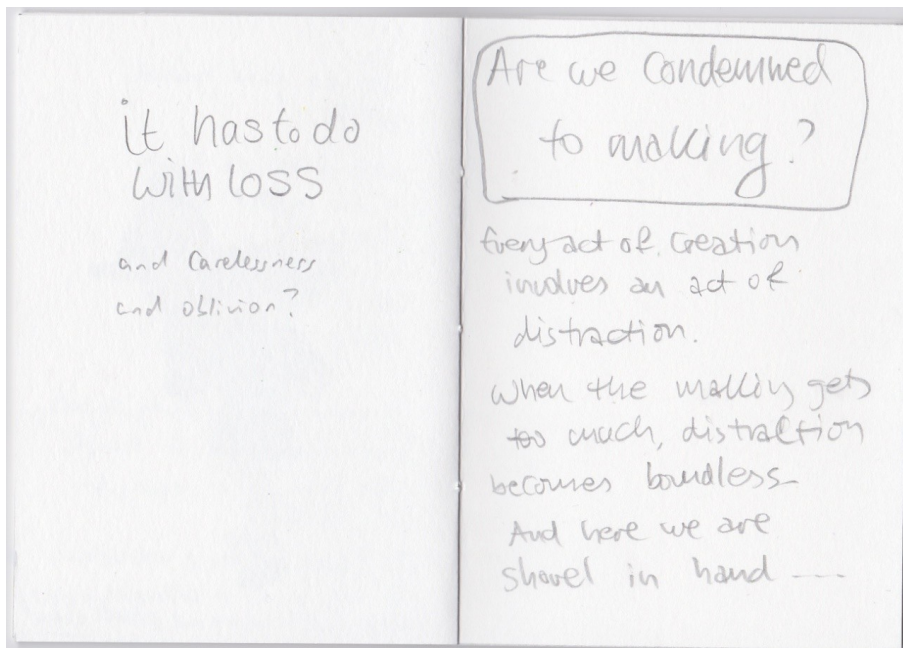 it has to do
with loss
and carelessness
and oblivion?
Are we condemned
to making?
Every act of creation
involves an act of
distraction.
When the making gets
too much, distraction
becomes boundless
And here we are
shovel in hand ----